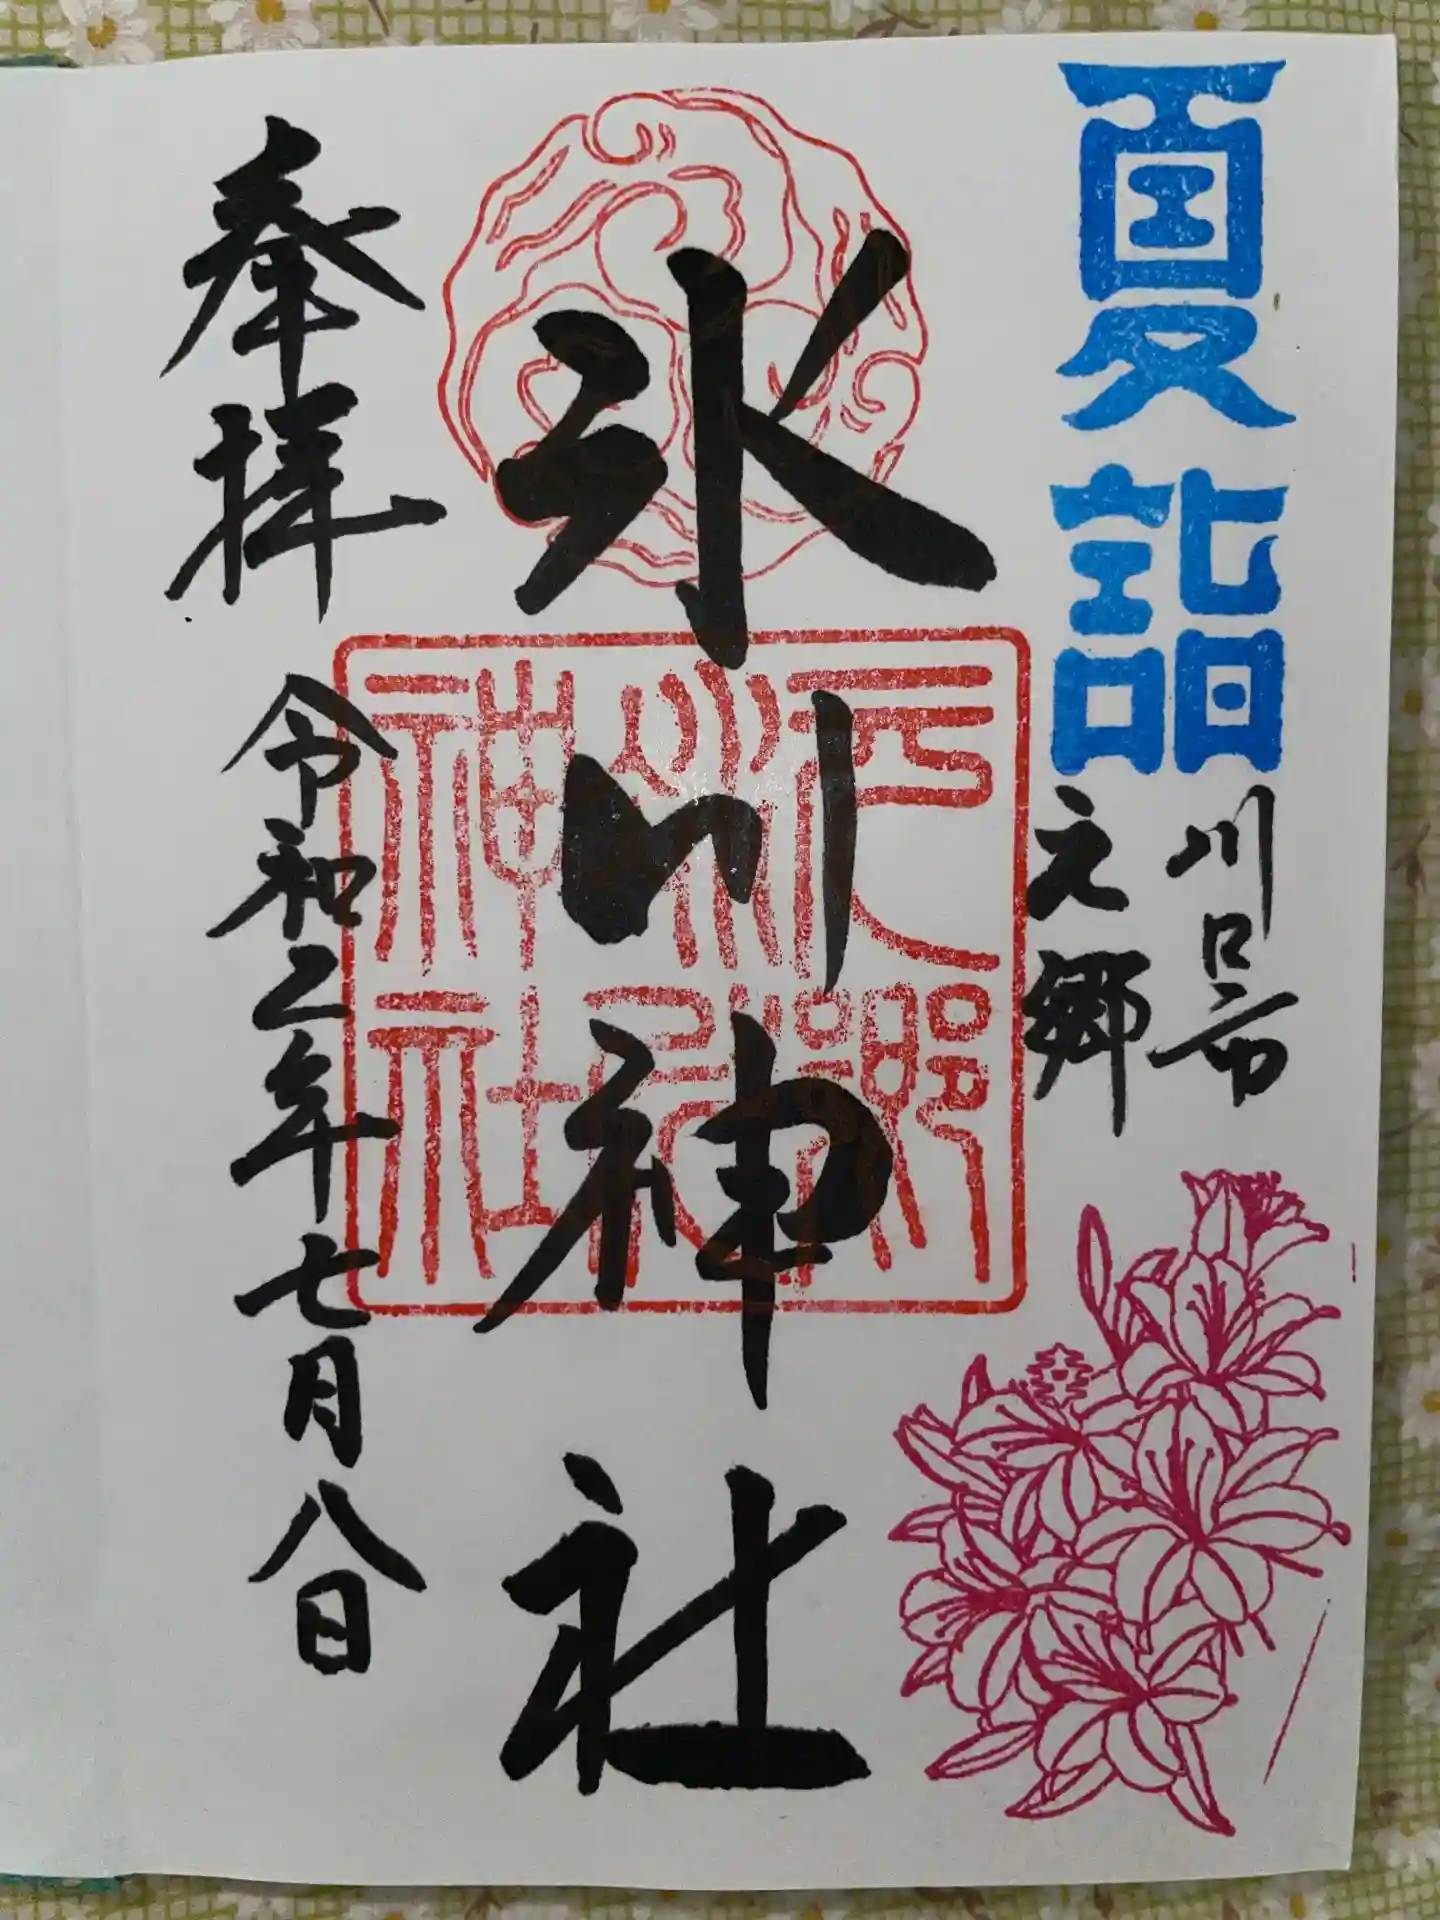 夏詣
川口市
元郷
氷川神社
元郷
氷川
神社
奉拝
令和二年七月八日